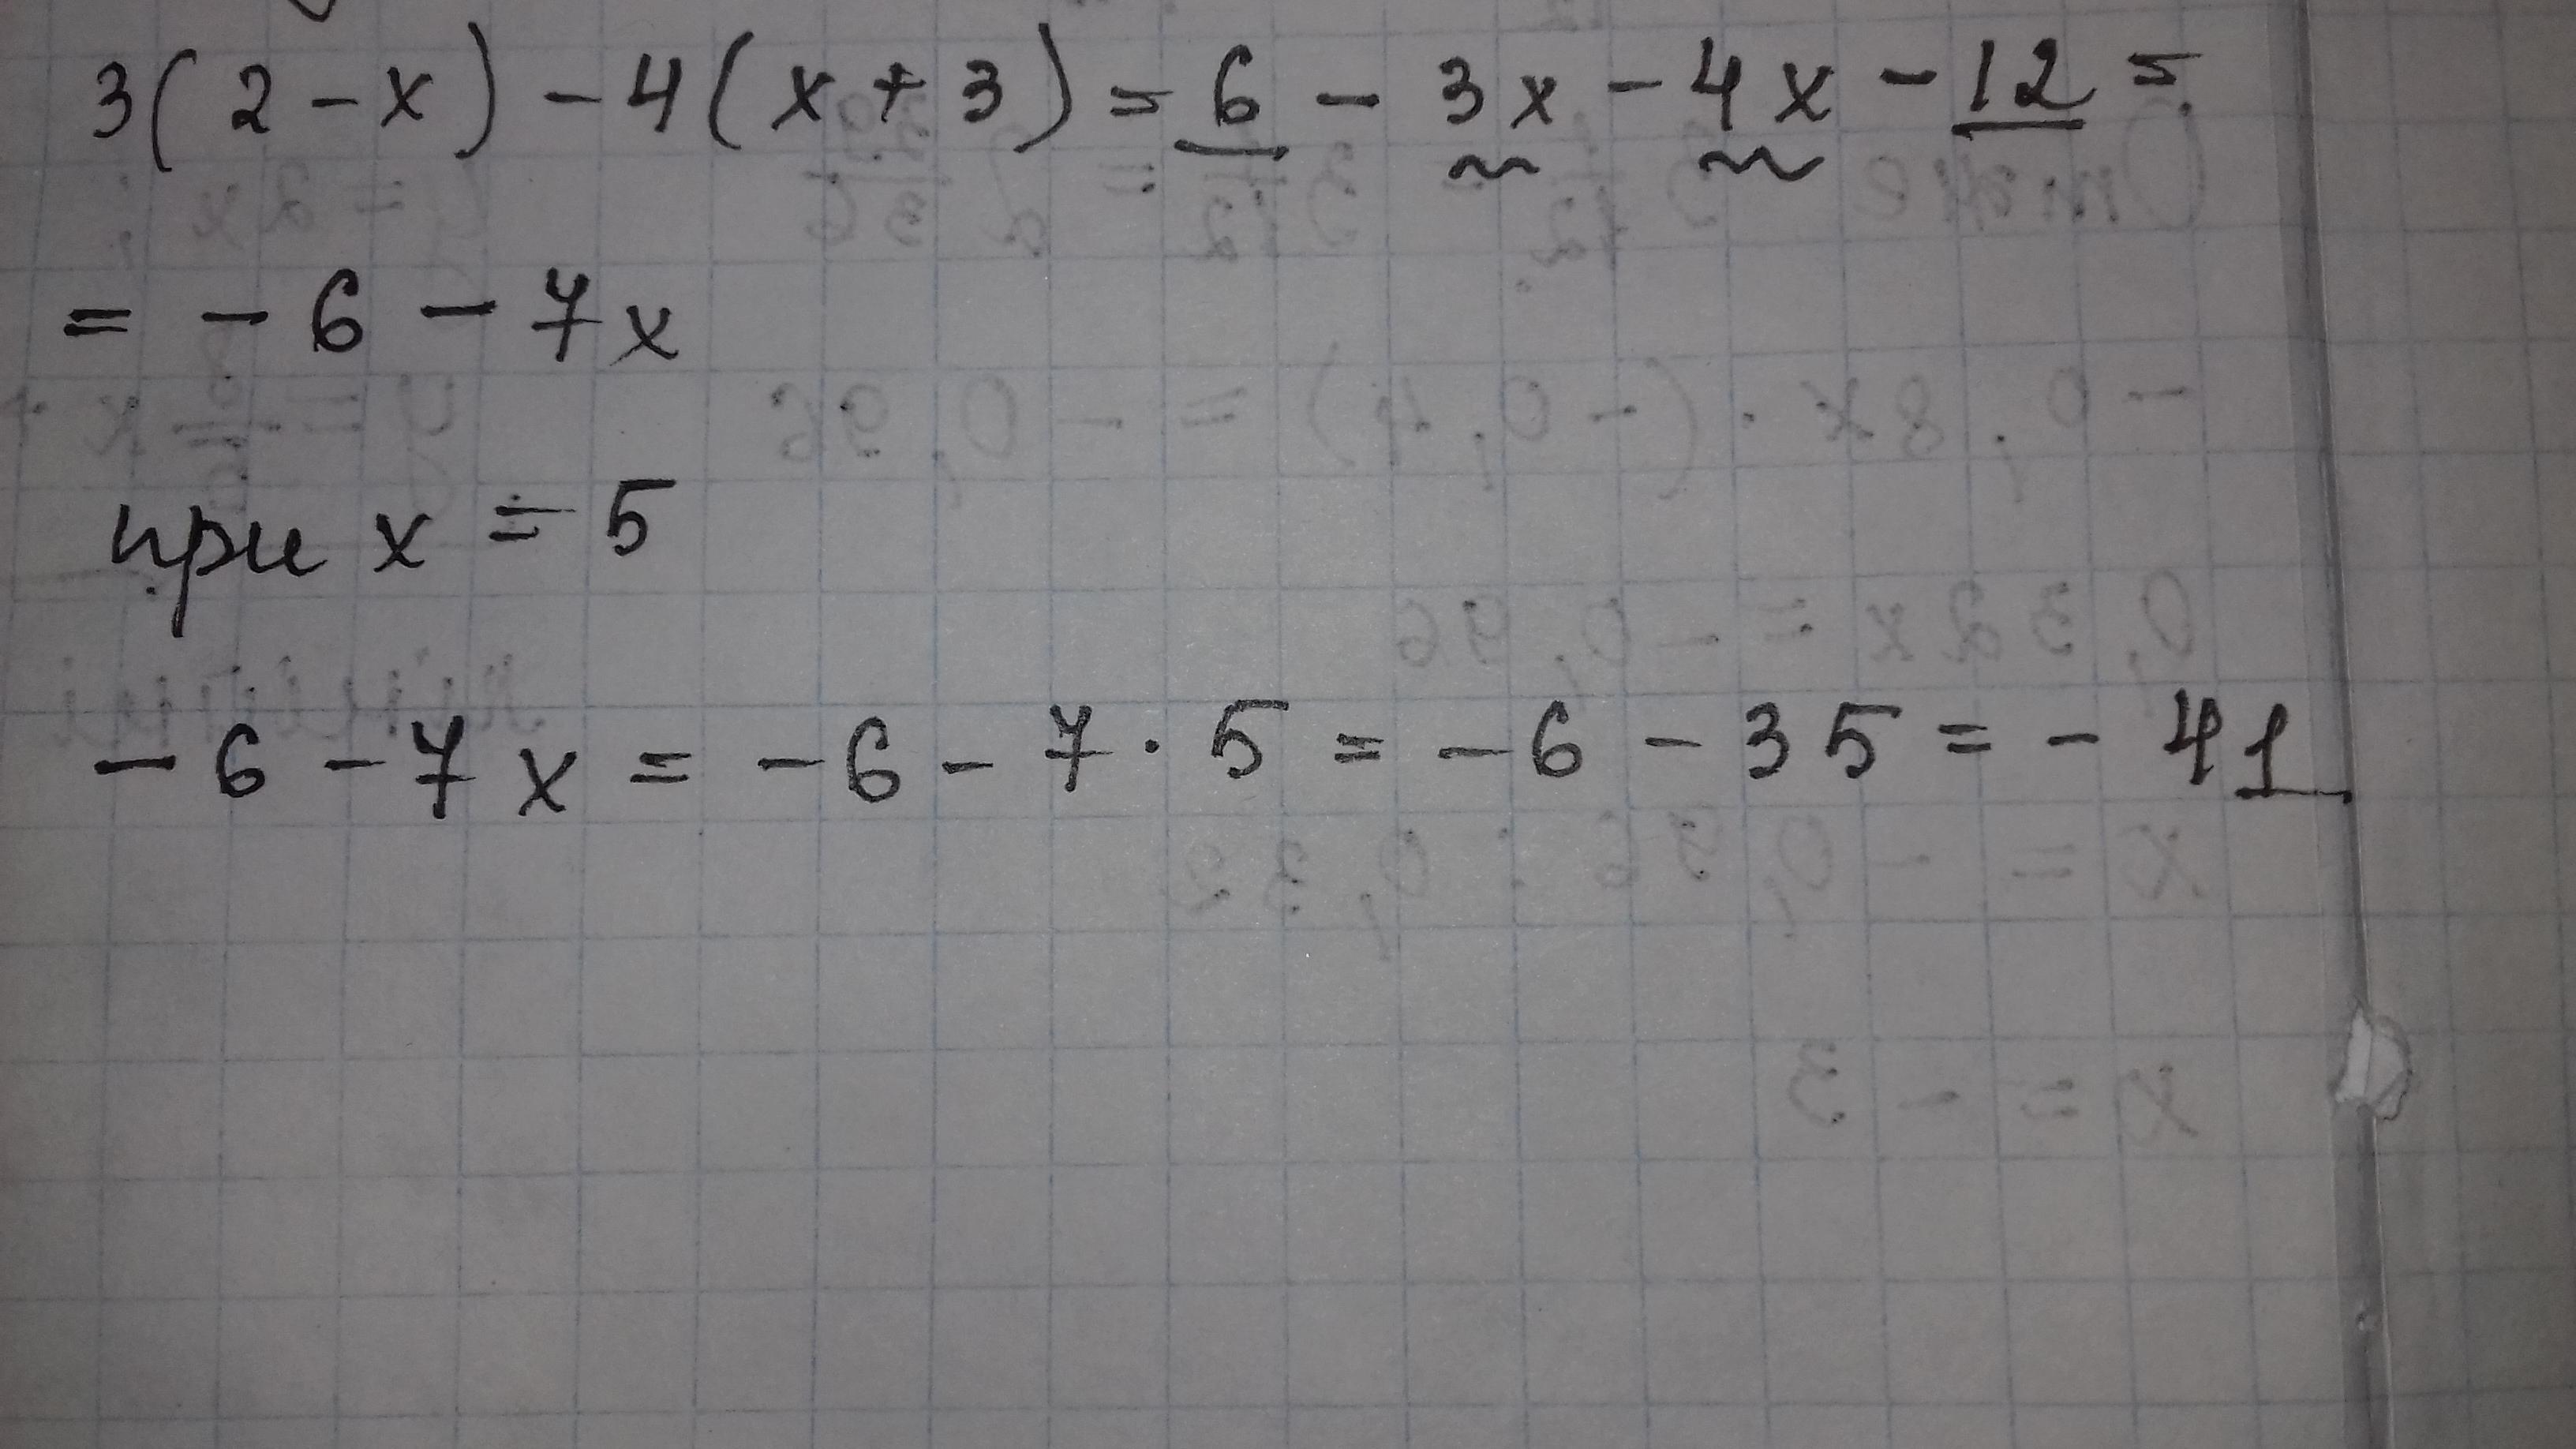 3(2-x)-4(x+3)=6-3x-4x-12=
=-6-7x
при x=5
-6-7x=-6-7·5=-6-35=-41